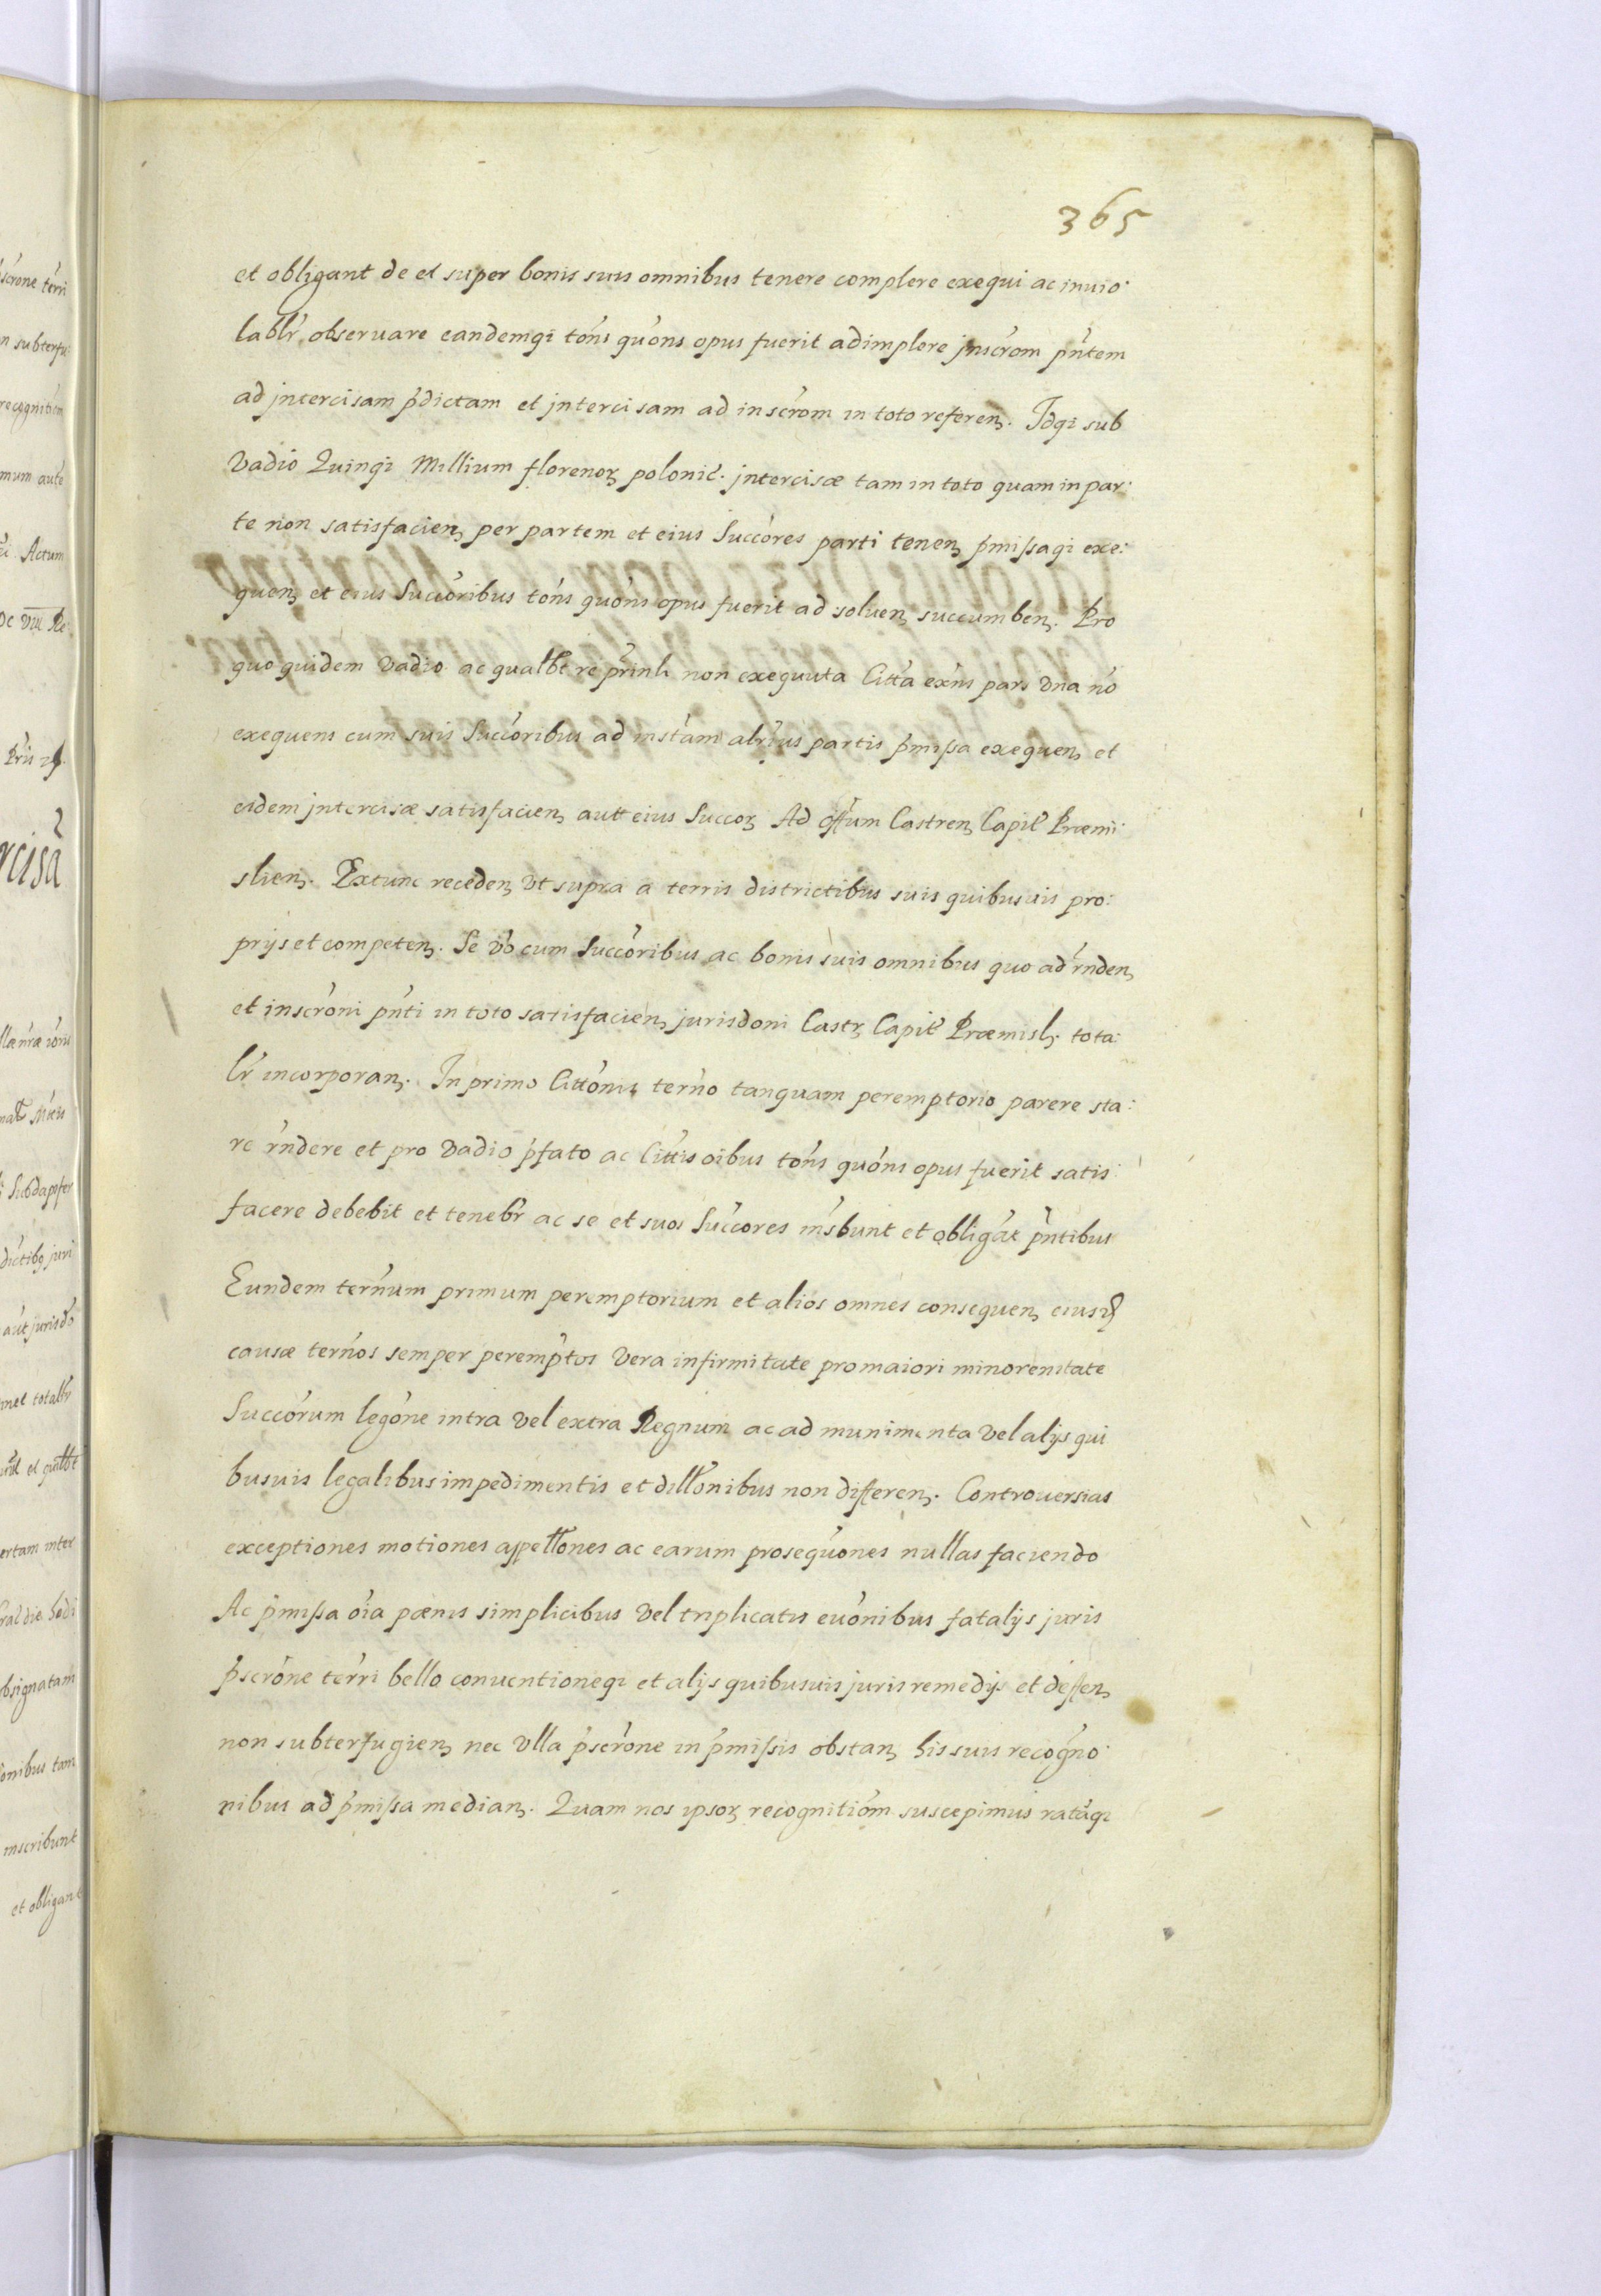 365
et obligant de et super bonis suis omnibus tenere complere exequi ac inuio:
labłr obseruare eandemqȝ tóns quóns opus fuerit adimplere jnscrom pñtem
ad jntercisam p̃dictam et jntercisam ad inscrom in toto referenȝ. Idqȝ sub
Vadio Quinqȝ Millium florenoꝝ polonić. jntercisæ tam in toto quam in par:
te non satisfacienȝ per partem et eius Succóres parti tenenȝ p̃missaqȝ exe:
quenȝ et eius Succóribus tóns quóns opus fuerit ad soluenȝ succumbenȝ. Pro
quo quidem Vadio ac qualłbt re prinłi non exequuta Citta exńs pars Vna nó
exequens cum suis Succóribus ad instám alrius partis p̃missa exequenȝ et
eidem jntercisæ satisfacienȝ autt eius Succoꝝ Ad offum Castrenȝ Capił Præmi:
slienȝ. Extunc recedenȝ Vt supra a terris districtibus suis quibusuis pro:
prijs et competenȝ. Se Vó cum Succóribus ac bonis suis omnibus quo ad rńdenȝ
et inscróni pñti in toto satisfacienȝ jurisdoni Castȝ Capił Præmislȝ. tota:
łr incorporanȝ. In primo Cittónis terńo tanquam peremptorio parere sta:
re rńdere et pro Vadio p̃fato ac Cittis oibus tóns quóns opus fuerit satis:
facere debebit et tenebr ac se et suos Succóres inśbunt et obligát pñtibus
Eundem terńum primum peremptorium et alios omnes consequenȝ eiusꝺ
causæ terńos semper peremptos Vera infirmitate pro maiori minorenitate
Succórum legóne intra Vel extra Regnum ac ad munimenta Vel alijs qui
busuis legalibus impedimentis et dilłonibus non differenȝ. Controuersias
exceptiones motiones appełłones ac earum prosequónes nullas faciendo
Ac p̃missa óia pænis simplicibus Vel triplicatis euónibus fatalijs juris
p̃scróne terri bello conuentioneqȝ et alijs quibusuis juris remedijs et deffenȝ
non subterfugienȝ nec Vlla p̃scróne in p̃missis obstanȝ his suis recogno:
nibus ad p̃missa medianȝ. Quam nos ipsoꝝ recognitióm suscepimus ratáqȝ